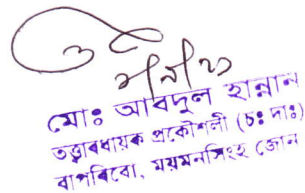 মোঃ আবদুল হান্নান
তত্ত্বাবধায়ক প্রকৌশলী (চঃ দাঃ)
বাপবিবো, ময়মনসিংহ জোন